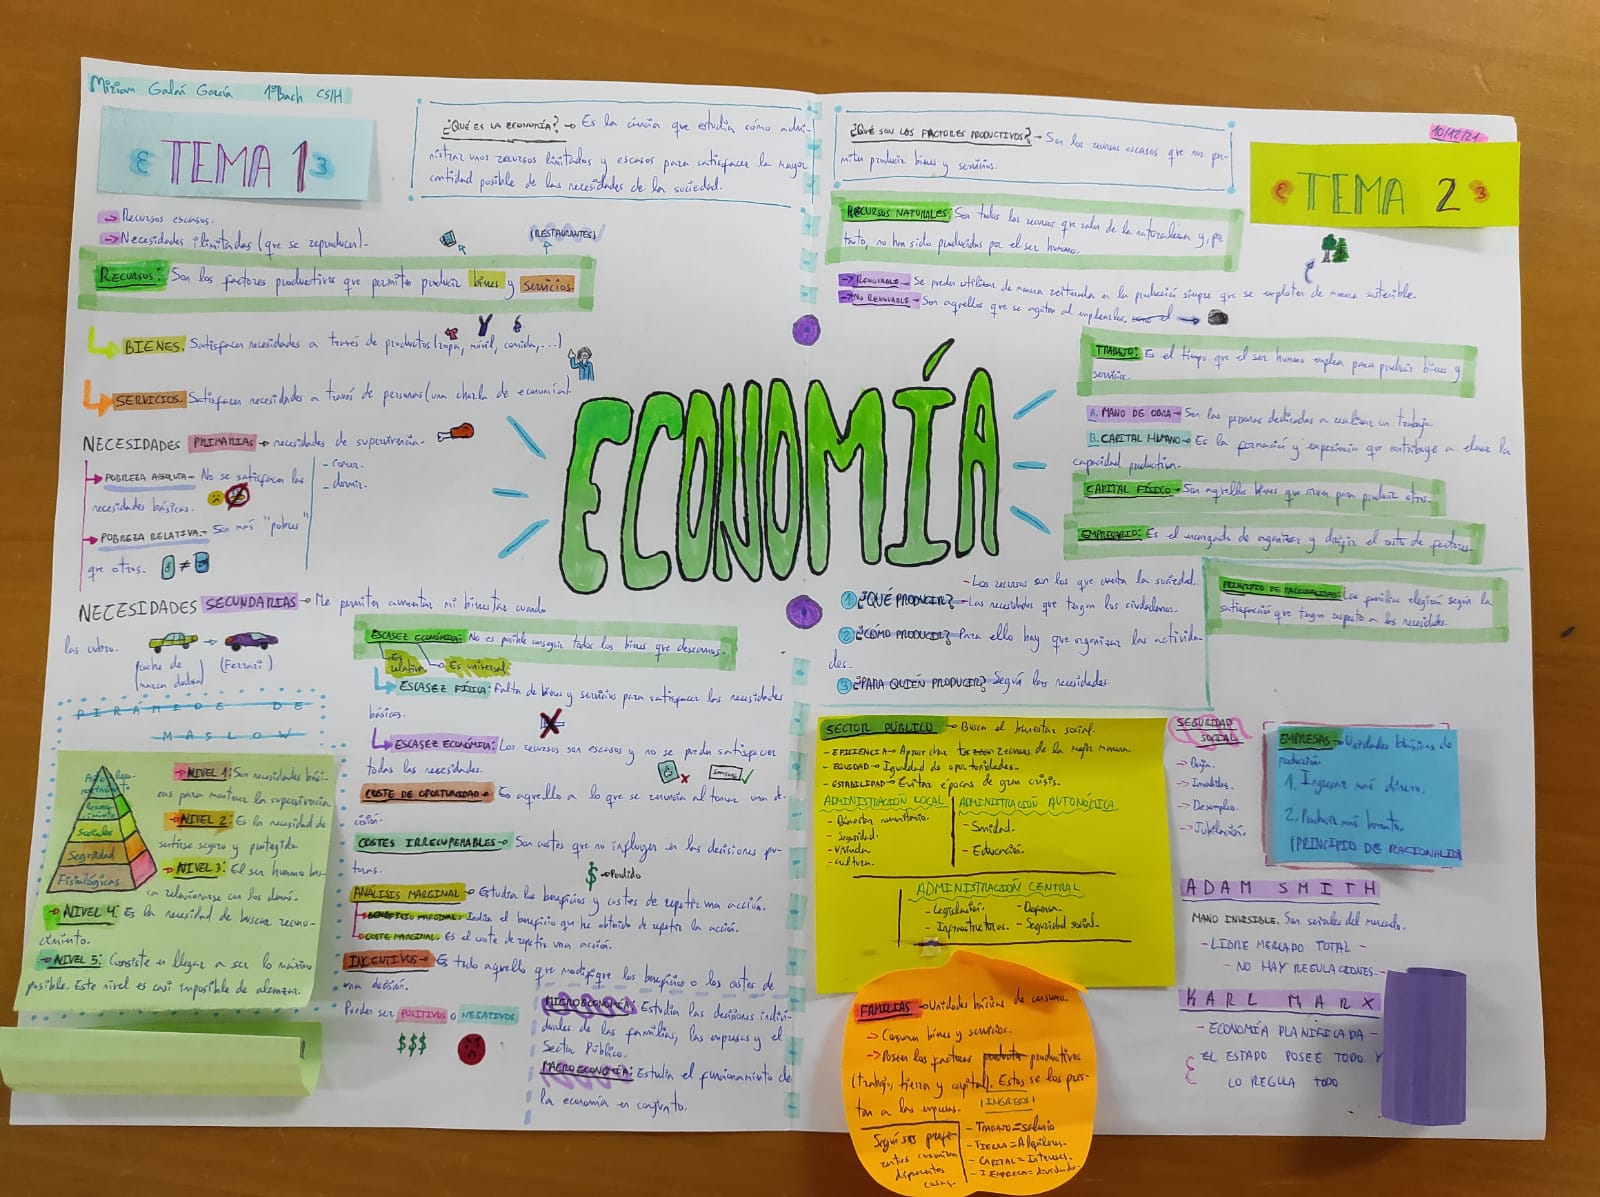 Miriam Galán García 1ºBach CS/H
TEMA 1
¿QUÉ ES LA ECONOMÍA? → Es la ciencia que estudia cómo admi-
nistrar unos recursos limitados y escasos para satisfacer la mayor
cantidad posible de las necesidades de la sociedad.
→ Recursos escasos.
→ Necesidades ilimitadas (que se reproducen).
(RESTAURANTES)
RECURSOS: Son los factores productivos que permiten producir bienes y servicios.
BIENES. Satisfacen necesidades a través de productos (ropa, móvil, comida,...)
SERVICIOS. Satisfacen necesidades a través de personas (una charla de economía)
NECESIDADES PRIMARIAS → necesidades de supervivencia.
- comer.
- dormir.
→ POBREZA ABSOLUTA → No se satisfacen las
necesidades básicas.
→ POBREZA RELATIVA → Son más "pobres"
que otros.
≠
NECESIDADES SECUNDARIAS → Me permiten aumentar mi bienestar cuando
las cubro.
(coche de
marca
(Ferrari)
PIRÁMIDE DE
MASLOW
Sociales
Seguridad
Fisiológicas
→ NIVEL 1: Son necesidades bási-
cas para mantener la supervivencia.
→ NIVEL 2: Es la necesidad de
sentirse seguro y protegido
→ NIVEL 3: El ser humano bus-
ca relacionarse con los demás.
→ NIVEL 4: Es la necesidad de buscar recono-
cimiento.
→ NIVEL 5: Consiste en llegar a ser lo máximo
posible. Este nivel es casi imposible de alcanzar.
ESCASEZ ECONÓMICA: No es posible conseguir todos los bienes que deseamos.
Es relativa
Es universal
ESCASEZ FÍSICA: Falta de bienes y servicios para satisfacer las necesidades
básicas.
ESCASEZ ECONÓMICA: Los recursos son escasos y no se puede satisfacer
todas las necesidades.
SAMSUNG
COSTE DE OPORTUNIDAD → Es aquello a lo que se renuncia al tomar una de-
cisión.
COSTES IRRECUPERABLES → Son costes que no influyen en las decisiones fu-
turas.
$ → Perdido
ANÁLISIS MARGINAL → Estudia los beneficios y costes de repetir una acción.
→ BENEFICIO MARGINAL: Indica el beneficio que he obtenido de repetir la acción.
→ COSTE MARGINAL: Es el coste de repetir una acción.
INCENTIVOS → Es todo aquello que modifique los beneficios o los costes de
una decisión.
Pueden ser POSITIVOS o NEGATIVOS
$$$
MICROECONOMÍA: Estudia las decisiones indivi-
duales de las familias, las empresas y el
Sector Público.
MACROECONOMÍA: Estudia el funcionamiento de
la economía en conjunto.
ECONOMÍA
10/12/21
TEMA 2
¿QUÉ SON LOS FACTORES PRODUCTIVOS? → Son los recursos escasos que nos per-
miten producir bienes y servicios.
RECURSOS NATURALES: Son todos los recursos que salen de la naturaleza y, por
tanto, no han sido producidos por el ser humano.
→ RENOVABLE → Se pueden utilizar de manera reiterada en la producción siempre que se exploten de manera sostenible.
→ NO RENOVABLE → Son aquellos que se agotan al emplearlos.
TRABAJO: Es el tiempo que el ser humano emplea para producir bienes y
servicios.
A. MANO DE OBRA → Son las personas dedicadas a realizar un trabajo.
B. CAPITAL HUMANO → Es la formación y experiencia que contribuye a elevar la
capacidad productiva.
CAPITAL FÍSICO → Son aquellos bienes que sirven para producir otros.
EMPRESARIO: Es el encargado de organizar y dirigir el resto de factores.
- Los recursos con los que cuenta la sociedad.
1 ¿QUÉ PRODUCIR? - Las necesidades que tengan los ciudadanos.
2 ¿CÓMO PRODUCIR? Para ello hay que organizar las activida-
des.
3 ¿PARA QUIÉN PRODUCIR? Según las necesidades.
PRINCIPIO DE RACIONALIDAD: Las familias elegirán según la
satisfacción que tengan respecto a las necesidades.
SECTOR PÚBLICO → Busca el bienestar social.
- EFICIENCIA → Aprovechar los recursos de la mejor manera.
- EQUIDAD → Igualdad de oportunidades.
- ESTABILIDAD → Evitar épocas de gran crisis.
ADMINISTRACIÓN LOCAL
- Bienestar comunitario.
- Seguridad.
- Vivienda
- Cultura.
ADMINISTRACIÓN AUTONÓMICA
- Sanidad.
- Educación.
ADMINISTRACIÓN CENTRAL
- Legislación.
- Infraestructuras.
- Defensa.
- Seguridad social.
SEGURIDAD
SOCIAL
- Baja.
- Invalidez.
- Desempleo.
- Jubilación.
EMPRESAS → Unidades básicas de
producción.
1. Ingresar más dinero.
2. Producir más barato.
(PRINCIPIO DE RACIONALIDAD
ADAM SMITH
MANO INVISIBLE. Son señales del mercado.
- LIBRE MERCADO TOTAL -
- NO HAY REGULACIONES -
KARL MARX
- ECONOMÍA PLANIFICADA -
EL ESTADO POSEE TODO Y
LO REGULA TODO
FAMILIAS → Unidades básicas de consumo.
→ Consumen bienes y servicios.
→ Poseen los factores productivos
(trabajo, tierra y capital). Estos se los pres-
tan a las empresas.
INGRESOS
- TRABAJO = Salario
- TIERRA = Alquileres.
- CAPITAL = Intereses.
- EMPRESA = dividendo
Según sus prefe-
rencias consumen
diferentes
cosas.